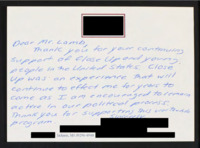 Dear Mr. Lamb,
Thank you for your continuing
support of Close Up and young
people in the United States. Close
Up was an experience that will
continue to affect me for years to
come and I am encouraged to remain
active in our political process.
Thank you for supporting this virtuous
program.